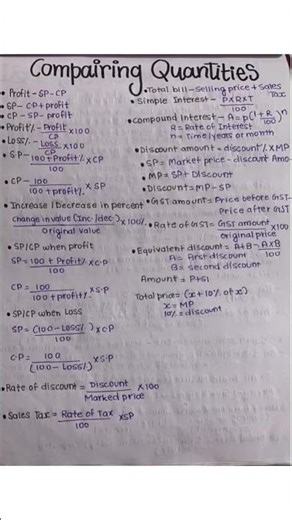 Compairing Quantities
• Profit - SP-CP
• SP - CP+profit
• CP - SP-profit
• Profit% - Profit/CP x100
• Loss% - Loss/CP x100
• SP - 100+Profit%/100 x CP
• CP - 100/100+profit% x SP
• Increase/Decrease in percent
change in value (Inc./dec)/Original Value x100%
• SP/CP when profit
SP = 100 + Profit%/100 x C·P
CP = 100/100+profit% x S·P
• SP/CP when Loss
SP = (100-Loss%)/100 x C·P
C·P = 100/(100-Loss%) x S·P
• Rate of discount = Discount/Marked price x100
• Sales Tax = Rate of Tax/100 xSP
• Total bill - Selling price + Sales Tax
• Simple Interest - PXRXT/100
• Compound interest - A = P(1+R/100)n
R = Rate of Interest
n = time/years or month
• Discount amount = discount% X MP
• SP = Market price - discount Amo-
• MP = SP + Discount
• Discount = MP - SP
• GST amount = Price before GST-
Price after GST
• Rate of GST = GST amount/original price x100
• Equivalent discount = A+B - AXB/100
A = First discount
B = Second discount
Amount = P+SI
Total price = (x+10% of x)
x = MP
10% = discount